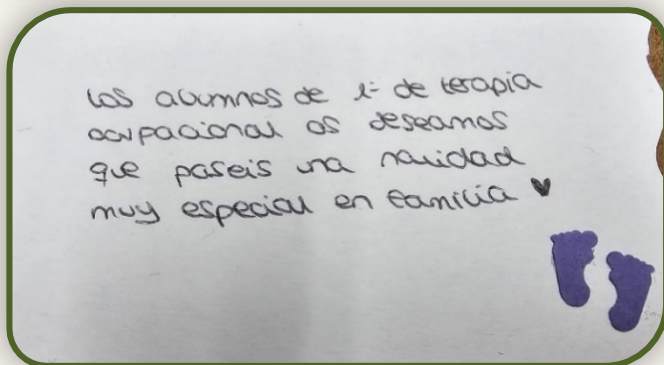 los alumnos de 1º de terapia
ocupacional os deseamos
que paseis una navidad
muy especial en familia ♥